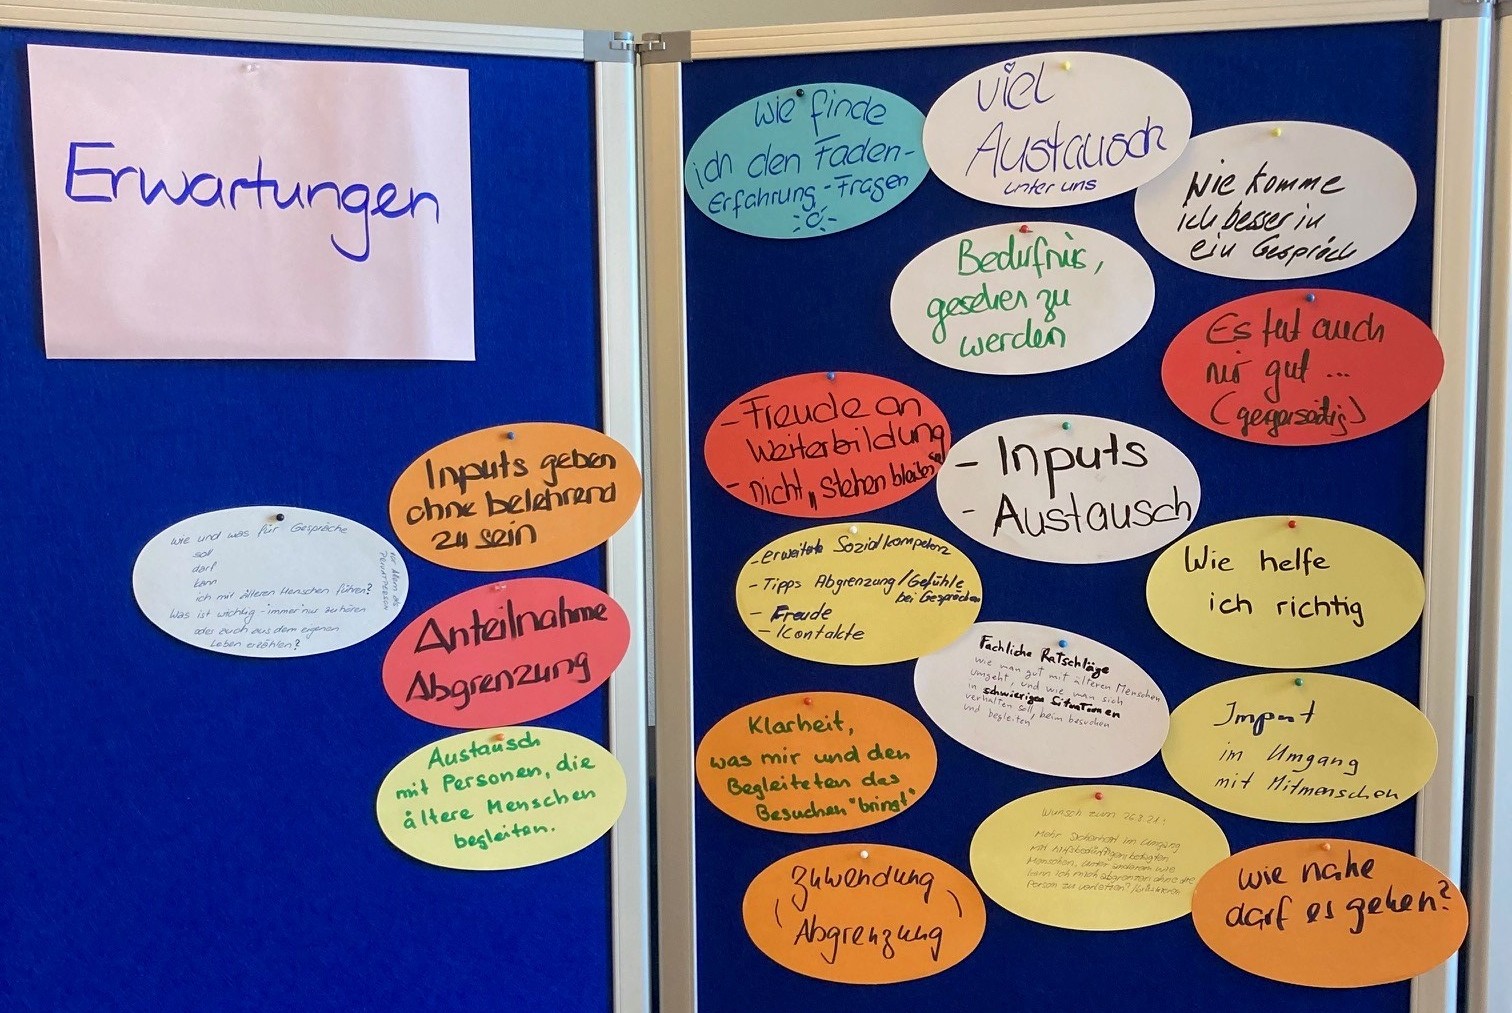 Erwartungen
Inputs geben
ohne belehrend
zu sein
wie und was für Gespräche
soll
darf
kann
ich mit älteren Menschen führen?
Was ist wichtig - immer nur zuhören
oder auch aus dem eigenen
Leben erzählen?
vor Allem als
PRIVATPERSON
Anteilnahme
Abgrenzung
Austausch
mit Personen, die
ältere Menschen
begleiten.
wie finde
ich den Faden-
Erfahrung-Fragen
viel
Austausch
unter uns
Wie komme
ich besser in
ein Gespräch
Bedürfnis,
gesehen zu
werden
Es tut auch
mir gut ...
(gegenseitig)
- Freude an
Weiterbildung
- nicht „stehen bleiben"
- Inputs
- Austausch
- erweiterte Sozialkompetenz
- Tipps Abgrenzung/Gefühle
bei Gesprächen
- Freude
- Kontakte
Wie helfe
ich richtig
Fachliche Ratschläge
wie man gut mit älteren Menschen
umgeht, und wie man sich
in schwierigen Situationen
verhalten soll, beim besuchen
und begleiten
Klarheit,
was mir und den
Begleiteten das
Besuchen "bringt"
Input
im Umgang
mit Mitmenschen
Wunsch zum 26.8.21:
Mehr Sicherheit im Umgang
mit hilfsbedürftigen/betagten
Menschen, unter anderem wie
kann ich mich abgrenzen ohne die
Person zu verletzen?
Zuwendung
Abgrenzung
wie nahe
darf es gehen?